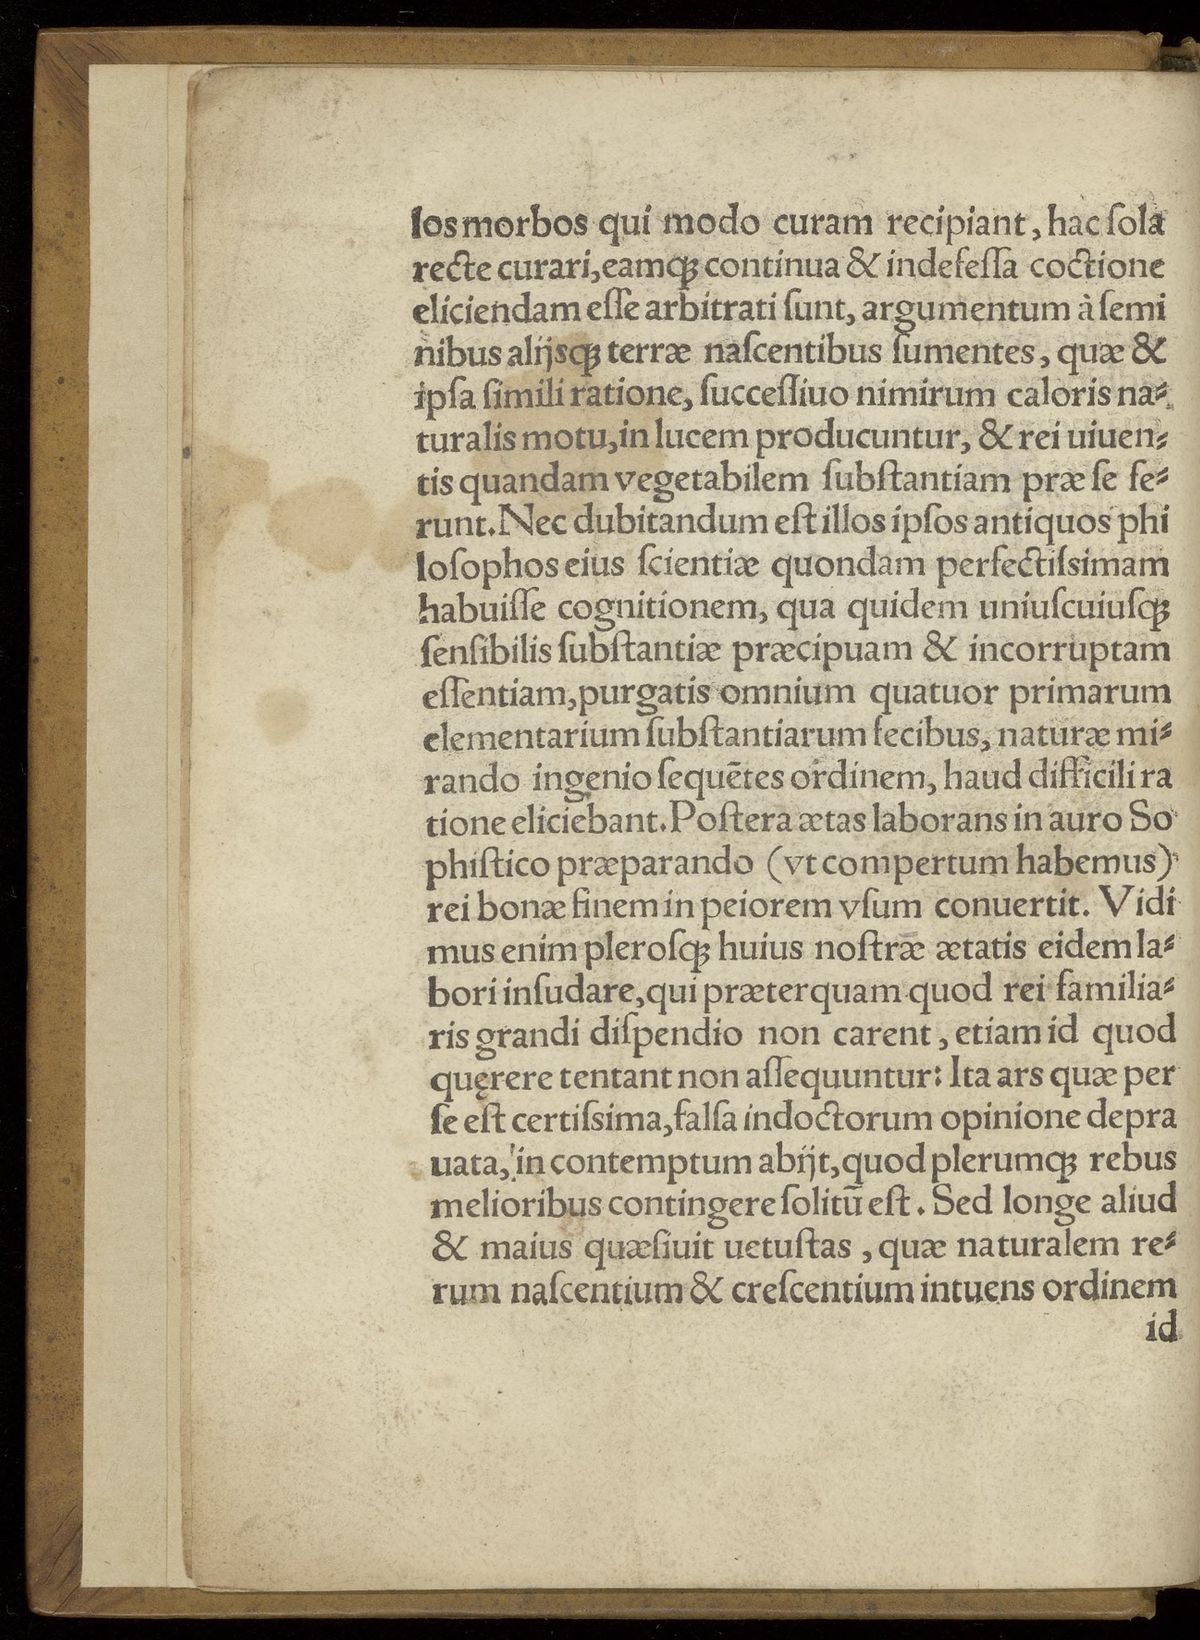 los morbos qui modo curam recipiant, hac ſola
recte curari, eamqꝫ continua & indefeſſa coctione
eliciendam eſſe arbitrati ſunt, argumentum à ſemi
nibus alijsqꝫ terræ naſcentibus ſumentes, quæ &
ipſa ſimili ratione, ſucceſſiuo nimirum caloris na⸗
turalis motu, in lucem producuntur, & rei uiuen⸗
tis quandam vegetabilem ſubſtantiam præ ſe fe⸗
runt. Nec dubitandum eſt illos ipſos antiquos phi
loſophos eius ſcientiæ quondam perfectiſsimam
habuiſſe cognitionem, qua quidem uniuſcuiuſqꝫ
ſenſibilis ſubſtantiæ præcipuam & incorruptam
eſſentiam, purgatis omnium quatuor primarum
elementarium ſubſtantiarum fecibus, naturæ mi⸗
rando ingenio ſequētes ordinem, haud difficili ra
tione eliciebant. Poſtera ætas laborans in auro So
phiſtico præparando (vt compertum habemus)
rei bonæ finem in peiorem vſum conuertit. Vidi
mus enim pleroſqꝫ huius noſtræ ætatis eidem la⸗
bori inſudare, qui præterquam quod rei familia⸗
ris grandi diſpendio non carent, etiam id quod
quęrere tentant non aſſequuntur: Ita ars quæ per
ſe eſt certiſsima, falſa indoctorum opinione depra
uata, in contemptum abijt, quod plerumqꝫ rebus
melioribus contingere ſolitū eſt. Sed longe aliud
& maius quæſiuit uetuſtas, quæ naturalem re⸗
rum naſcentium & creſcentium intuens ordinem
id